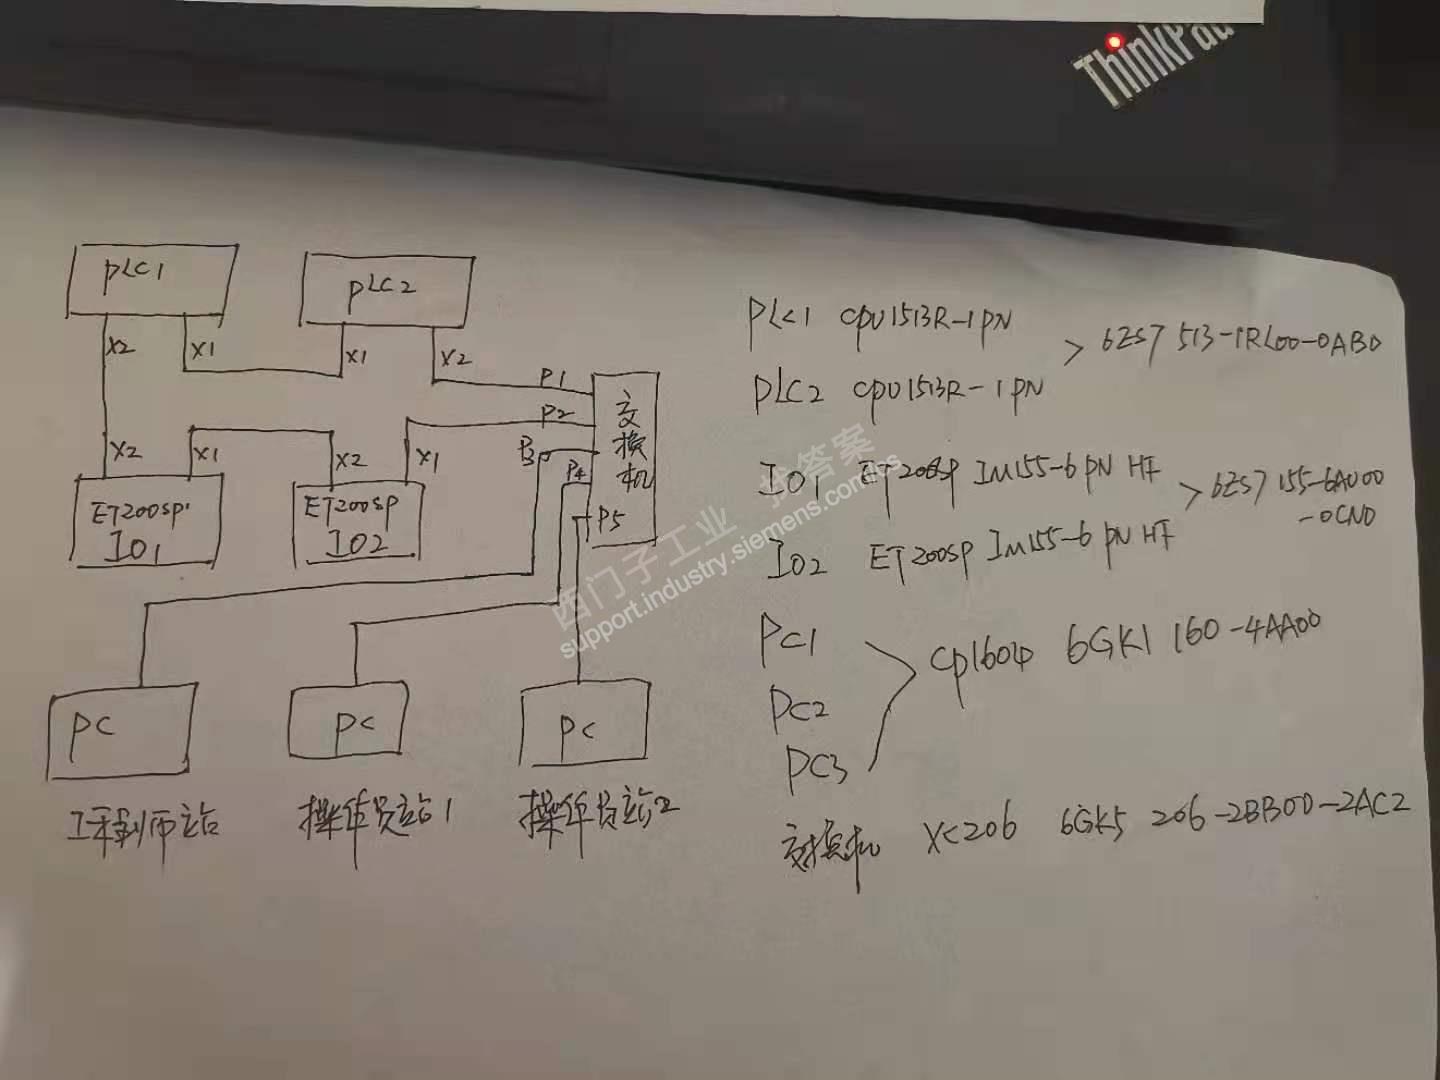 ThinkPad
PLC1
PLC2
X2
X1
X1
X2
P1
P2
P3
P4
P5
交换机
X2
X1
X2
X1
ET200SP
IO1
ET200SP
IO2
PC
PC
PC
工程师站
操作员站1
操作员站2
PLC1 CPU1513R-1PN
> 6ES7 513-1RL00-0AB0
PLC2 CPU1513R-1PN
IO1 ET200SP IM155-6 PN HF
> 6ES7 155-6AU00
-0CN0
IO2 ET200SP IM155-6 PN HF
PC1
CP1604 6GK1 160-4AA00
PC2
PC3
交换机 XC206 6GK5 206-2BB00-2AC2
西门子工业 找答案
support.industry.siemens.com/cs